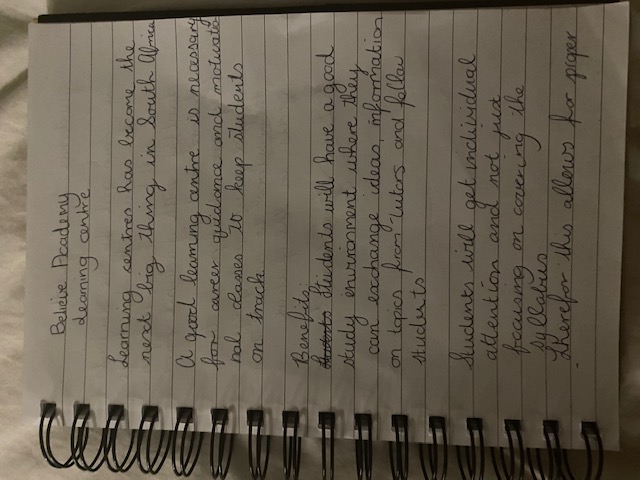 Believe Academy
Learning centre
Learning centres has become the
next big thing in South Africa
A good learning centre is necessary
for career guidance and motivatio
nal classes to keep students
on track
Benefits:
Students Students will have a good
study environment where they
can exchange ideas, information
on topics from tutors and fellow
students
Students will get individual
attention and not just
focusing on covering the
syllabus
Therefor this allows for proper